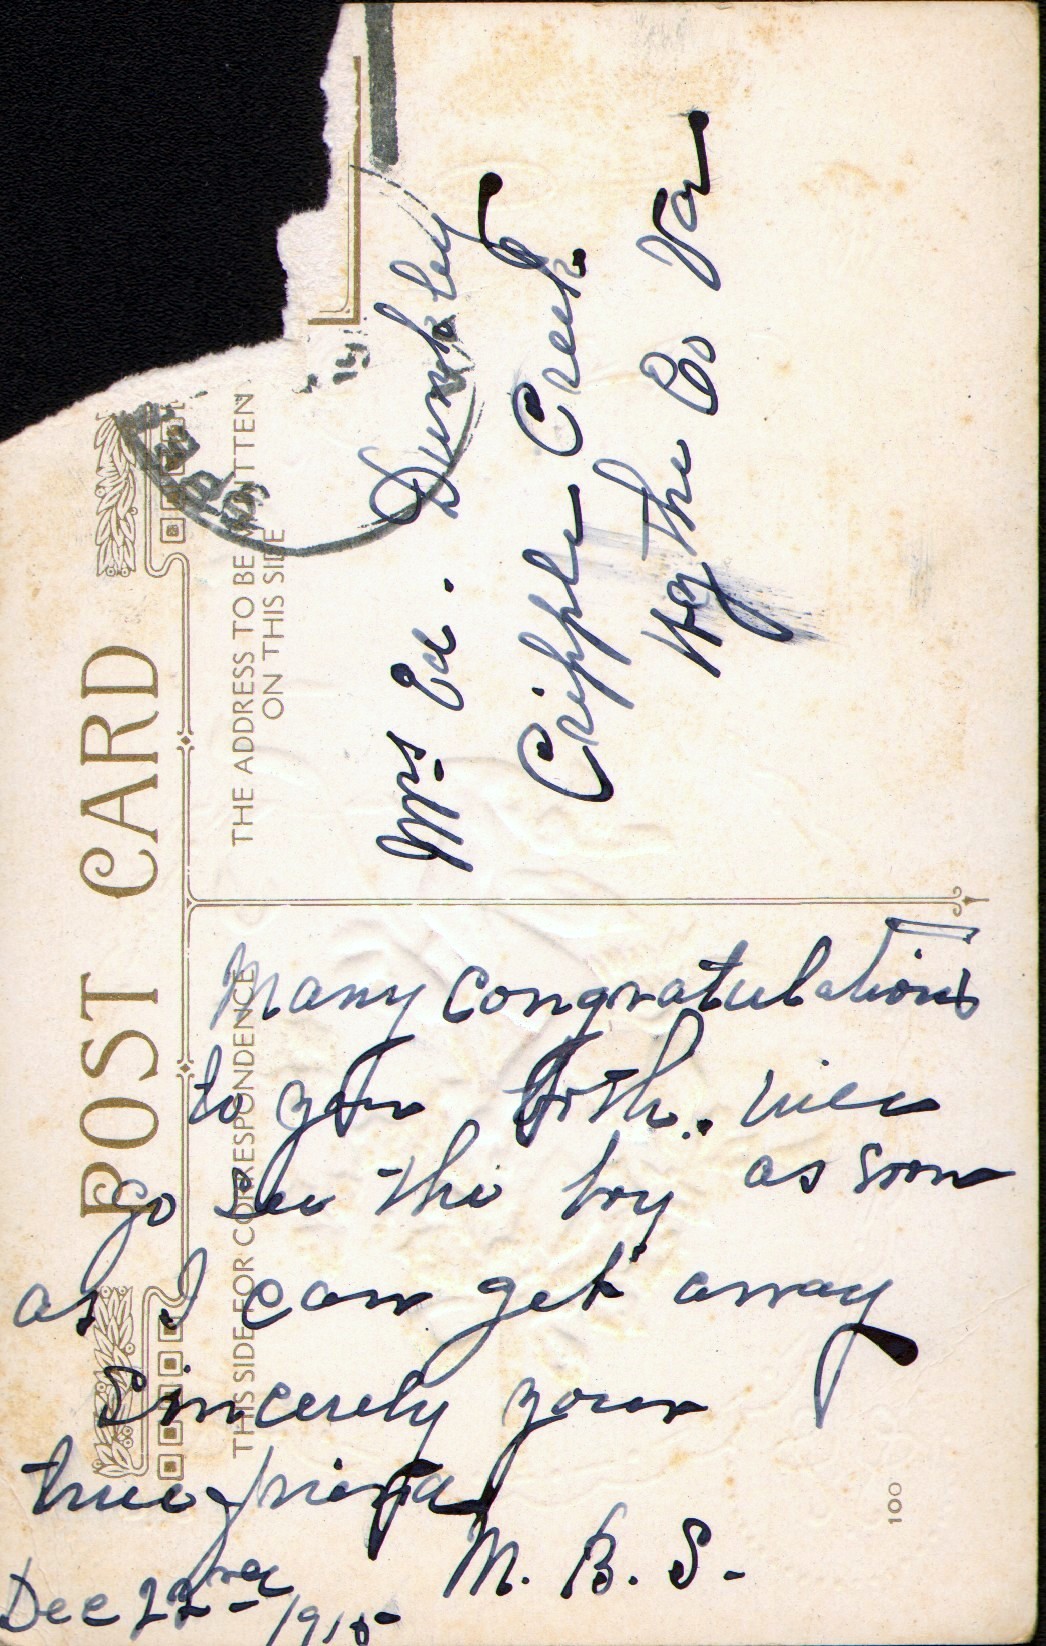 POST CARD
THE ADDRESS TO BE WRITTEN
ON THIS SIDE
THIS SIDE FOR CORRESPONDENCE
Mrs Ed. Dunkley
Cripple Creek
Wythe Co Va
Many congratulations
to you both. will
go see the boy as soon
as I can get away
Sincerely your
true friend
M. B. S.
Dec 22nd 1915
100